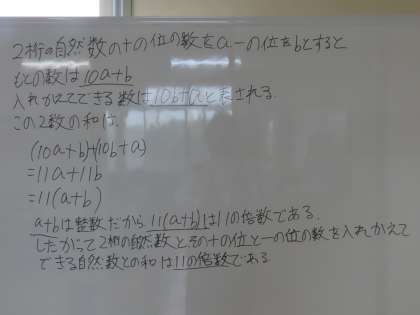 2桁の自然数の十の位の数をa.一の位をbとすると
もとの数は10a+b
入れかえてできる数は10b+aと表される.
この2数の和は.
(10a+b)+(10b+a)
=11a+11b
=11(a+b)
a+bは整数だから11(a+b)は11の倍数である.
したがって2桁の自然数とその十の位と一の位の数を入れかえて
できる自然数との和は11の倍数である